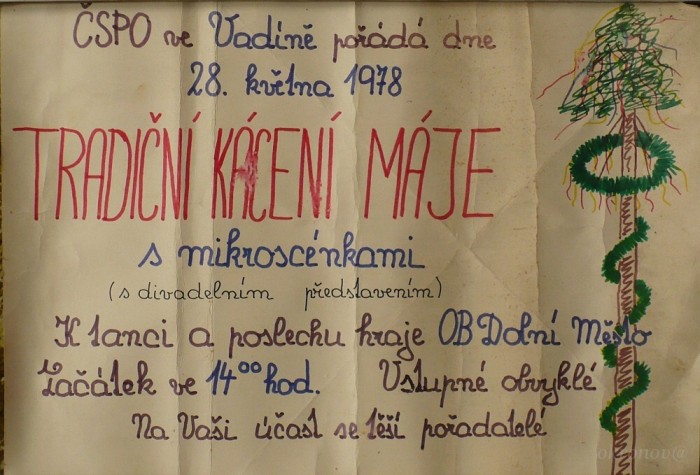 ČSPO ve Vadíně pořádá dne
28. května 1978
TRADIČNÍ KÁCENÍ MÁJE
s mikroscénkami
(s divadelním představením)
K tanci a poslechu hraje OB Dolní Město
Začátek ve 14⁰⁰ hod. Vstupné obvyklé
Na Vaši účast se těší pořadatelé